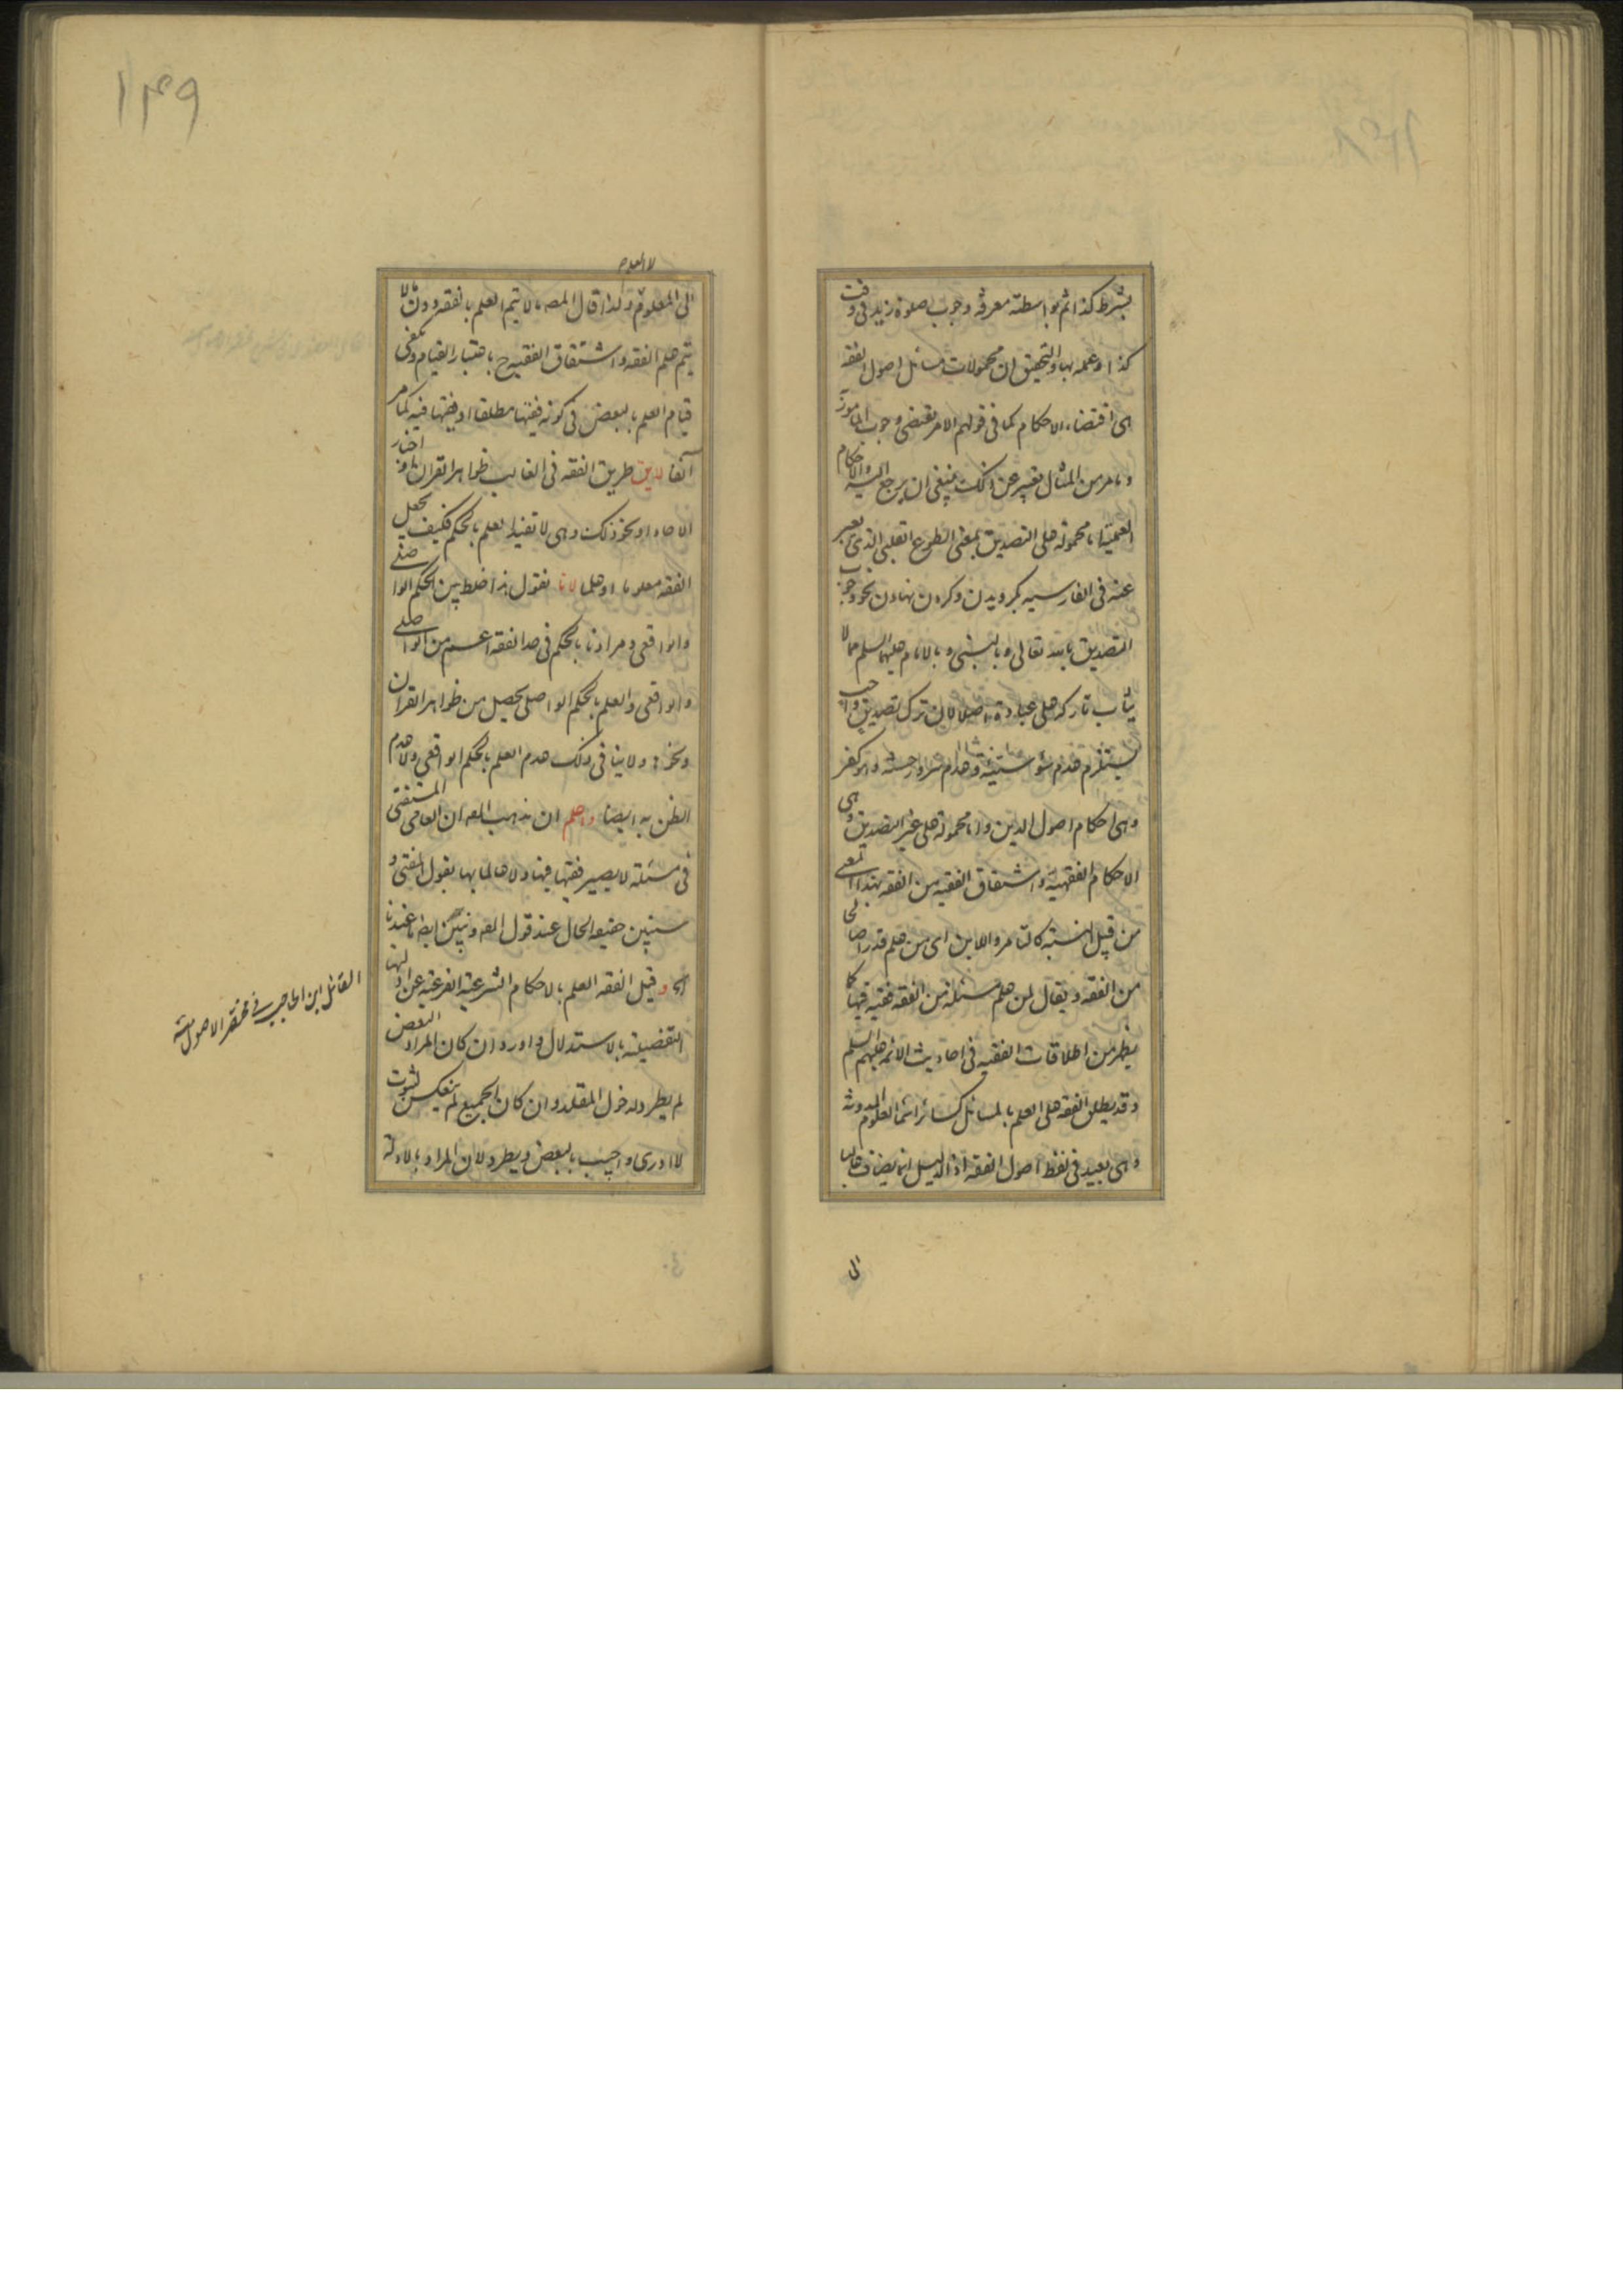 بشرط كذا ثم بواسطته معرفة وجوب صلوة زيد فى وقت
كذا او عمله بها والتحقيق ان محمولات مسائل اصول الفقه
هى اقتضاء الاحكام كما فى قولهم الامر يقتضى وجوب المامور
وما مر من المثال تعبير عن ذلك ينبغى ان يرجع اليه والاحكام
العملية اما محمولة على التصديق بمعنى الطوع القلبى الذى يعبر
عنه فى الفارسية بكرويدن وكردن نهادن نحو وجوب
التصديق بالله تعالى وبالنبى وبالامام عليهما السلم مما لا
يثاب تاركه على عبادة اصلا لان ترك تصديق واجب
وهى احكام اصول الدين واما محمولة على غير التصديق وهى
الاحكام الفقهية واشتقاق الفقيه من الفقه بهذا المعنى
من قبيل النسبة كالتامر واللابن اى من علم قدرا صالحا
من الفقه ويقال لمن علم مسئلة من الفقه فقيه فيها كما
يظهر من اطلاقات الفقيه فى احاديث الائمة عليهم السلم
وقد يطلق الفقه على العلم بالمسائل كسائر اسما العلوم المدونة
وهى بعيد فى لفظ اصول الفقه اذ الدليل انما يضاف غالبا
الى
١٤٩
لا العلم
الى المعلوم ولذا قال المص ما لا يتم العلم بالفقه دون ما لا
يتم علم الفقه واشتقاق الفقيه ح باعتبار القيام ويكفى
قيام العلم بالبعض فى كونه فقيها مطلقا او فقيها فيه كما مر
آنفا لايق طريق الفقه فى الغالب ظواهر القران او اخبار
الاحاد او نحو ذلك وهى لا تفيد العلم بالحكم فكيف يجعل
الفقه معلوما او علما لانا نقول هذا خلط بين الحكم الواصلى
والواقعى ومرادنا بالحكم فى حد الفقه اعم من الواصلى
والواقعى والعلم بالحكم الواصلى يحصل من ظواهر القران
ونحوه ولا ينافى ذلك عدم العلم بالحكم الواقعى ولا عدم
الظن به ايضا واعلم ان مذهب المص ان العامى المستفتى
فى مسئلة لا يصير فقيها فيها ولا عالما بها بقول المفتى و
سنبين حقيقة الحال عند قول المص ونبين ايضا ما عندنا
اى وقيل الفقه العلم بالاحكام الشرعية الفرعية عن ادلتها
التفصيلية بالاستدلال واورد ان كان المراد البعض
لم يطرد لدخول المقلد وان كان الجميع لم ينعكس لثبوت
لا ادرى واجيب بالبعض ويطرد لان المراد بالادلة
القائل ابن الحاجب فى مختصر الاصول منه